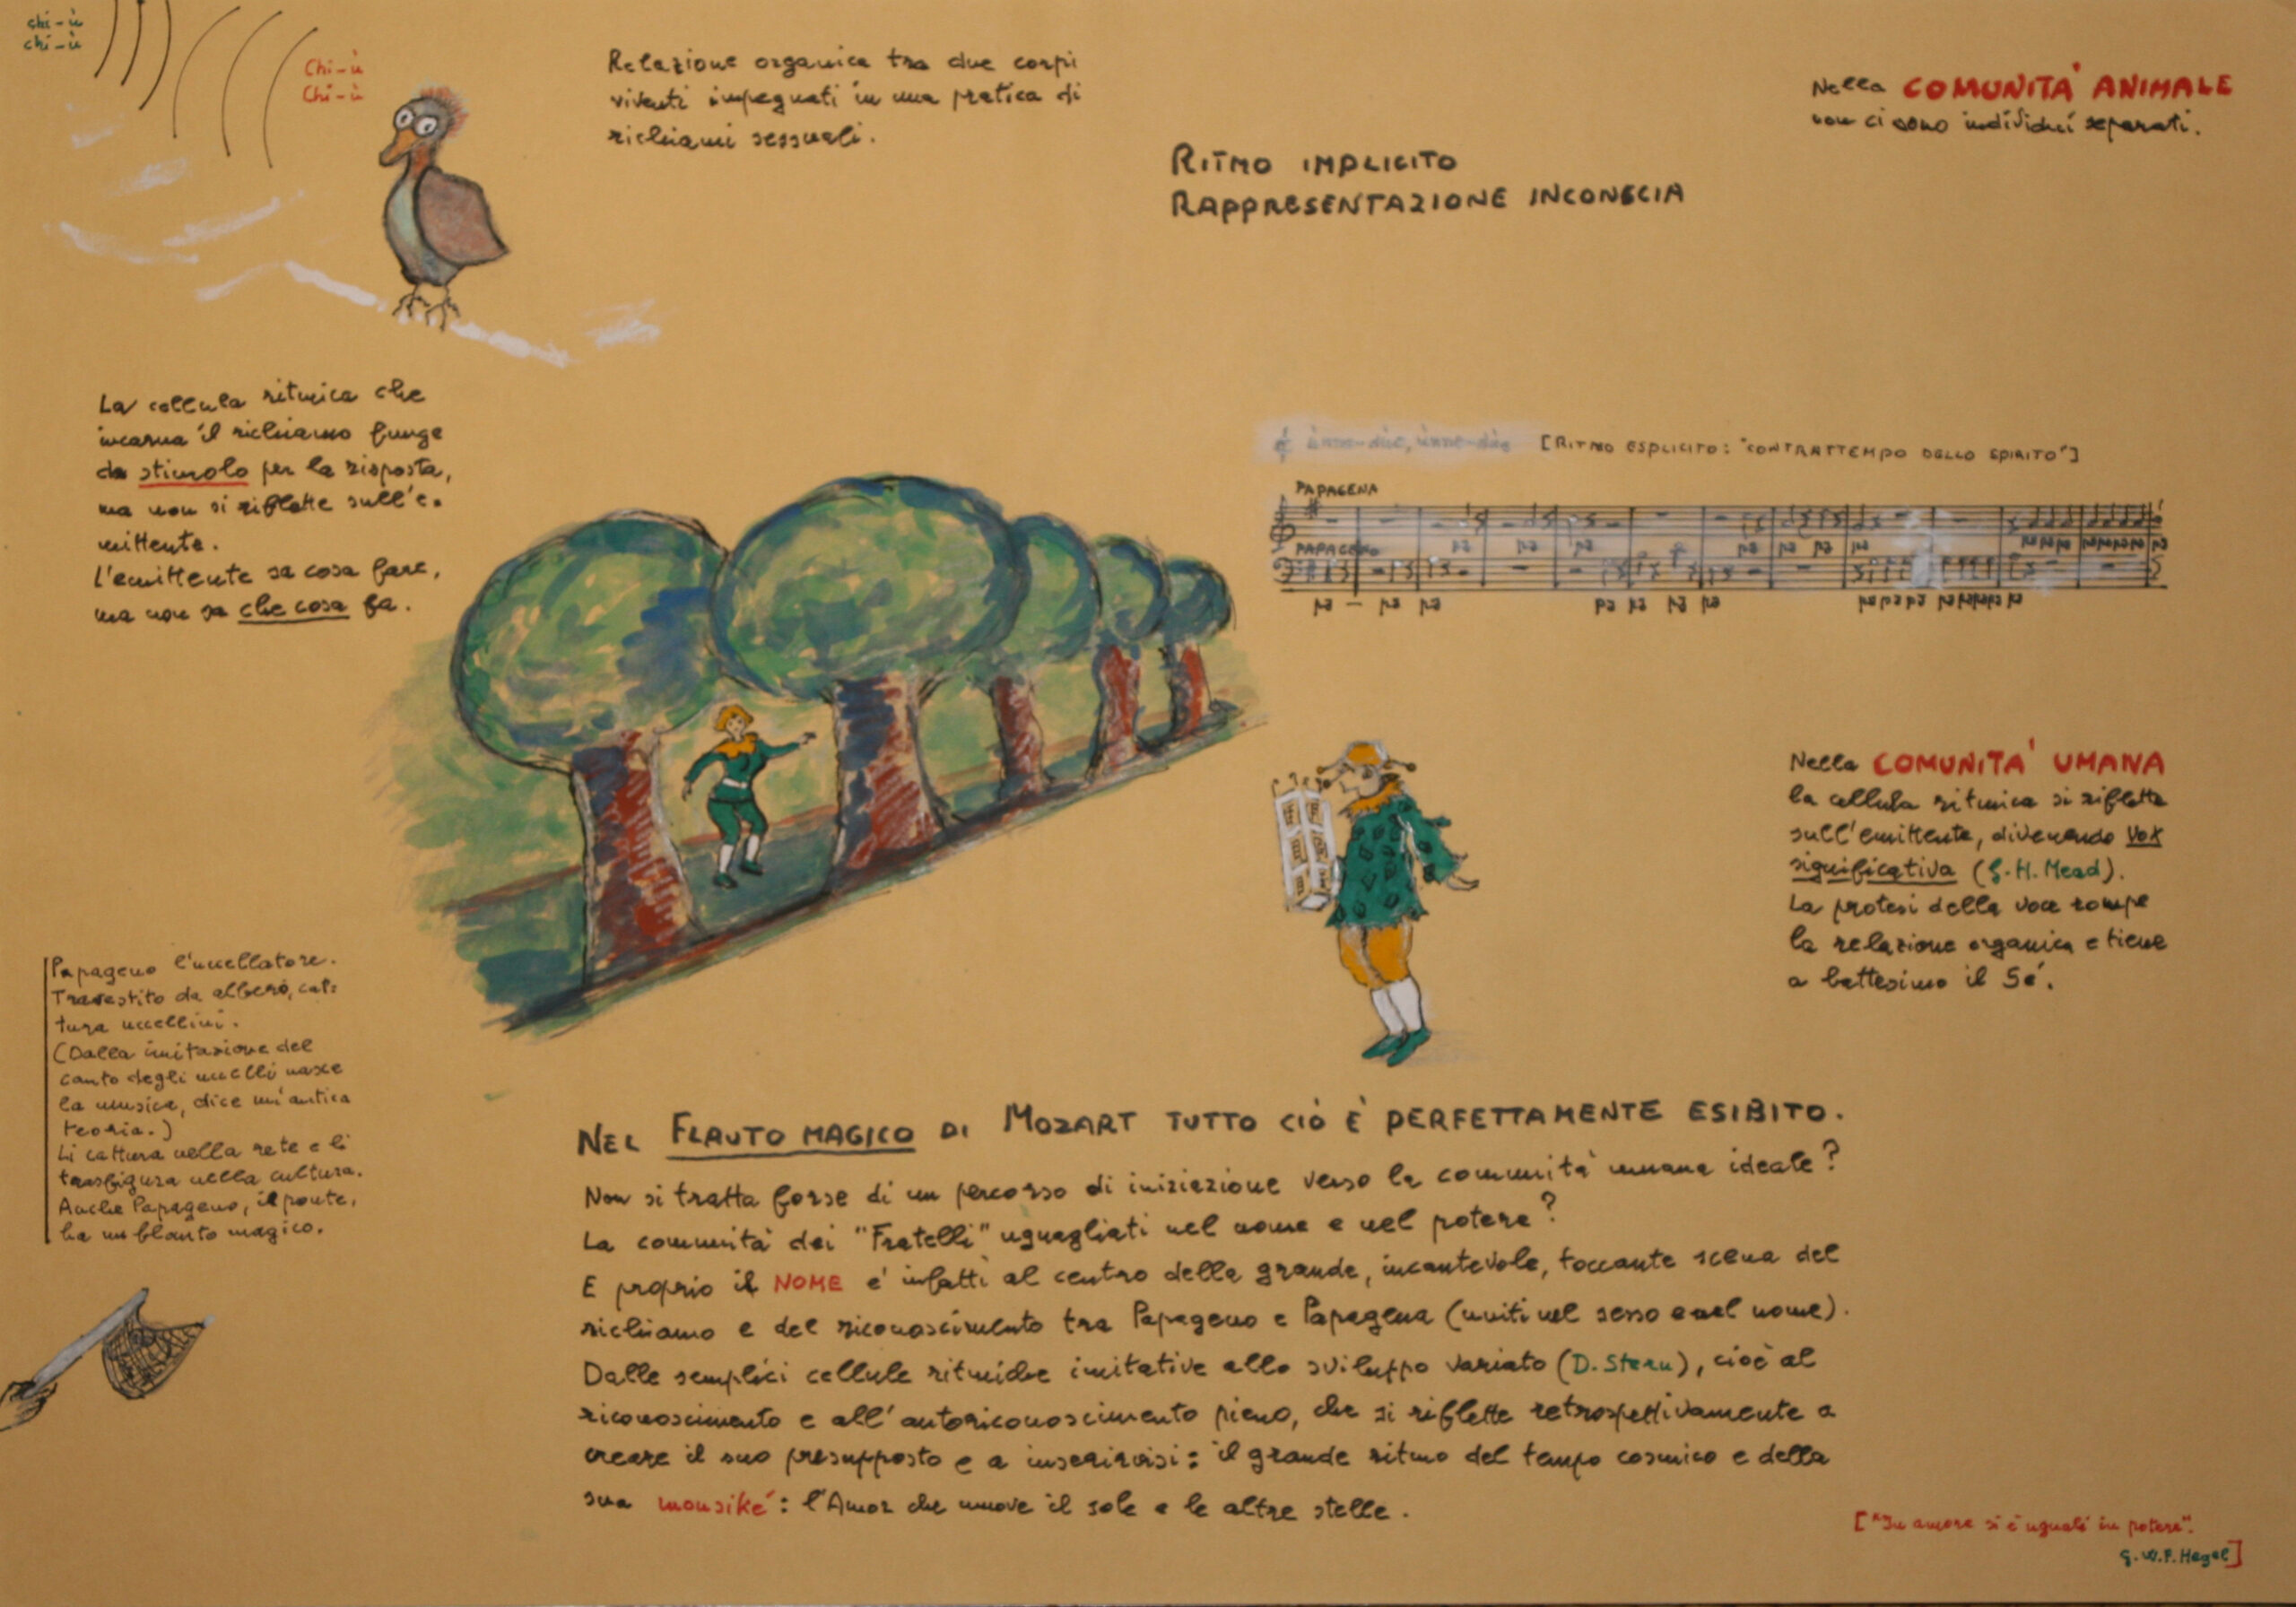 chi-ù
chi-ù
Chi-ù
Chi-ù
Relazione organica tra due corpi
viventi impegnati in una pratica di
richiami sessuali.
RITMO IMPLICITO
RAPPRESENTAZIONE INCONSCIA
Nella COMUNITA' ANIMALE
non ci sono individui separati.
La cellula ritmica che
incarna il richiamo funge
da stimolo per la risposta,
ma non si riflette sull'e-
mittente.
L'emittente sa cosa fare,
ma non sa che cosa fa.
ùnne-dùe, ùnne-dùe [RITMO ESPLICITO: "CONTRATTEMPO DELLO SPIRITO"]
PAPAGENA
pa pa pa pa pa pa pa pa pa pa pa pa pa pa pa pa
PAPAGENO
pa – pa pa pa pa pa pa pa pa pa pa pa pa pa pa
Nella COMUNITA' UMANA
la cellula ritmica si riflette
sull'emittente, divenendo vox
significativa (G.H. Mead).
La protesi della voce rompe
la relazione organica e tiene
a battesimo il Sé.
Papageno l'uccellatore.
Travestito da albero, cat-
tura uccellini.
(Dalla imitazione del
canto degli uccelli nasce
la musica, dice un'antica
teoria.)
Li cattura nella rete e li
trasfigura nella cultura.
Anche Papageno, il ponte,
ha un flauto magico.
NEL FLAUTO MAGICO DI MOZART TUTTO CIÒ È PERFETTAMENTE ESIBITO.
Non si tratta forse di un percorso di iniziazione verso la comunità umana ideale?
La comunità dei "Fratelli" uguagliati nel nome e nel potere?
E proprio il NOME è infatti al centro della grande, incantevole, toccante scena del
richiamo e del riconoscimento tra Papageno e Papagena (uniti nel sesso e nel nome).
Dalle semplici cellule ritmiche imitative allo sviluppo variato (D. Stern), cioè al
riconoscimento e all'autoriconoscimento pieno, che si riflette retrospettivamente a
creare il suo presupposto e a inserirvisi: il grande ritmo del tempo cosmico e della
sua mousiké: l'Amor che muove il sole e le altre stelle.
["In amore si è uguali in potere".
G.W.F. Hegel]